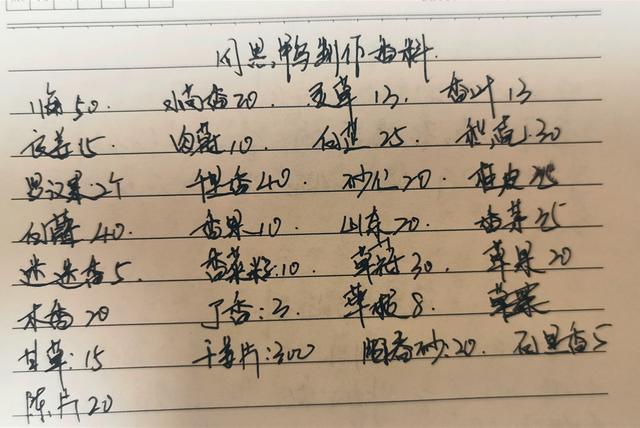 周黑鸭制作香料
八角50. 小茴香20 灵草13. 香叶13
良姜15 肉蔻10 白芷25 30
罗汉果:2个 千里香40 砂仁20 桂皮25
白蔻40. 香果10 山奈20 香茅25
迷迭香5. 香菜籽:10. 30 草果20
木香20 丁香:3. 8
甘草:15 干姜片:300 阳春砂:20. 5
陈片20